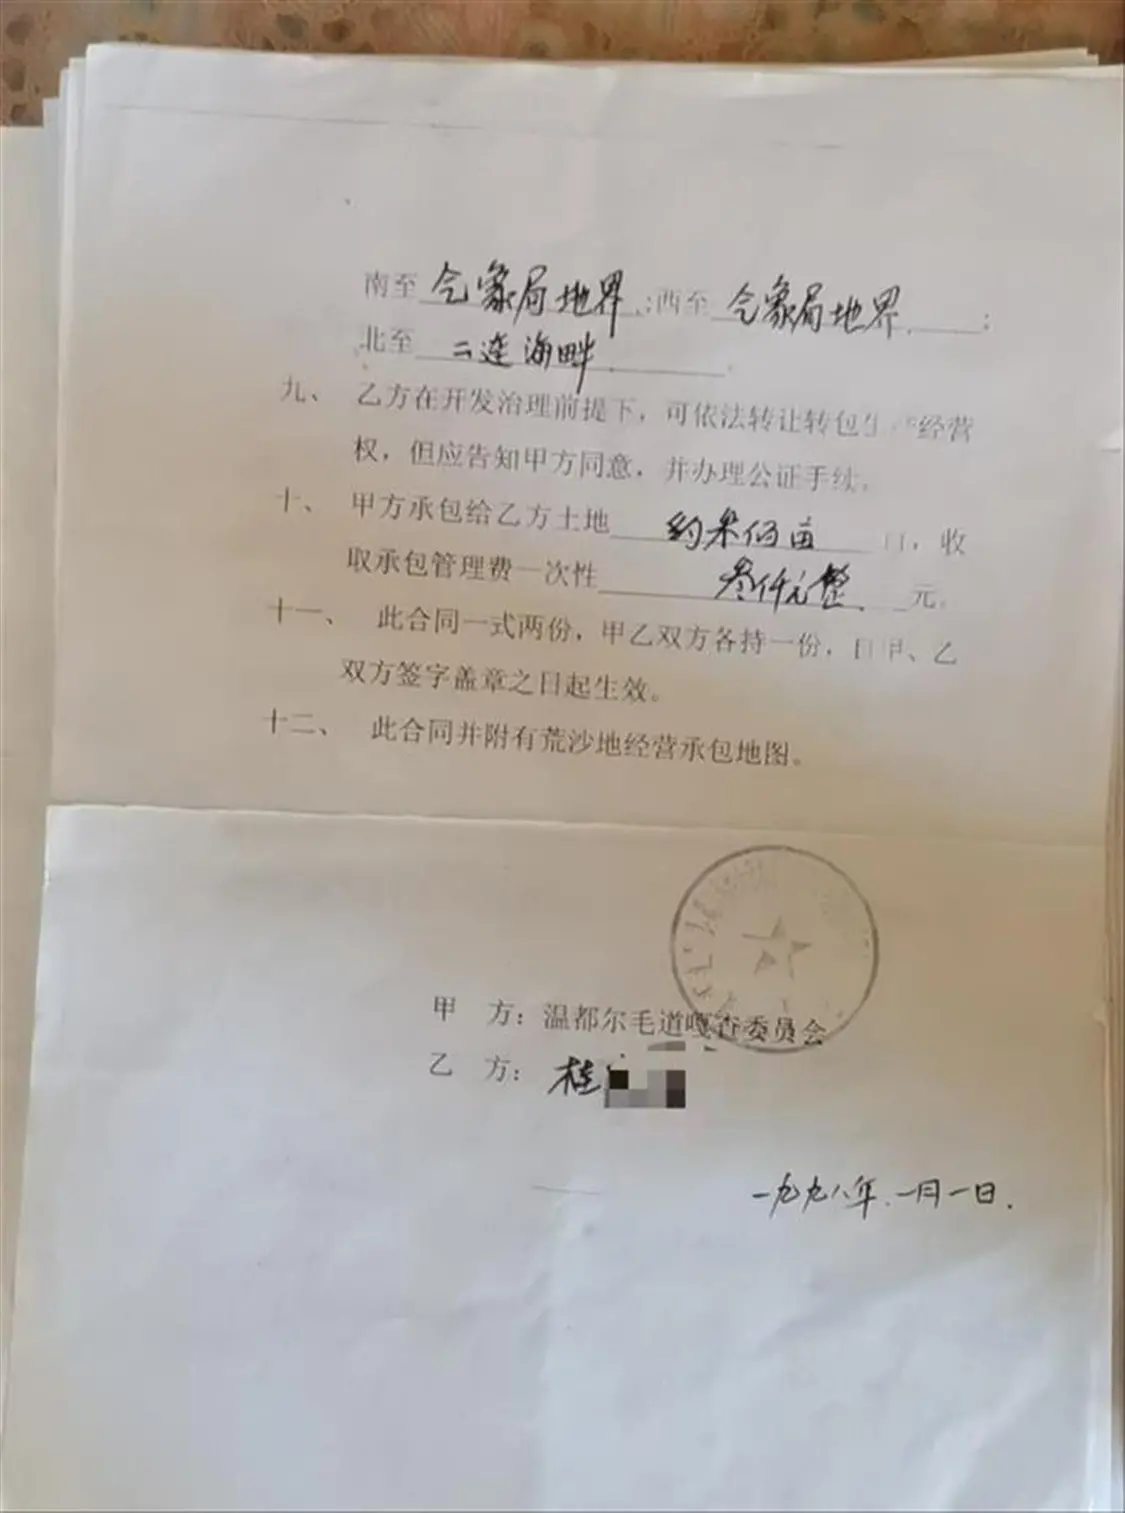 南至气象局地界;西至气象局地界;
北至二连海畔.
九、乙方在开发治理前提下,可依法转让转包生产经营
权,但应告知甲方同意,并办理公证手续。
十、甲方承包给乙方土地约 佰亩 ,收
取承包管理费一次性叁仟元整 元。
十一、此合同一式两份,甲乙双方各持一份,自甲、乙
双方签字盖章之日起生效。
十二、此合同并附有荒沙地经营承包地图。
甲 方:温都尔毛道嘎查委员会
乙 方:桂
一九九八年.一月一日.